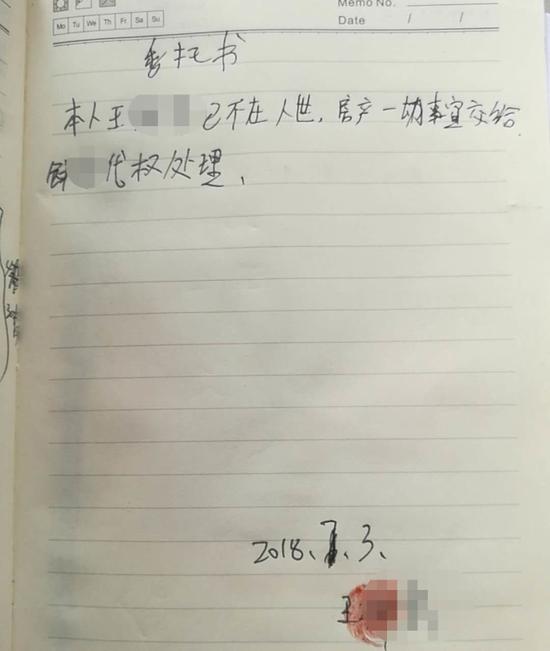 Memo No.
Mo Tu We Th Fr Sa Su
Date / /
委托书
本人王 已不在人世,房产一切事宜交给
代权处理、
2018、7、3、
王